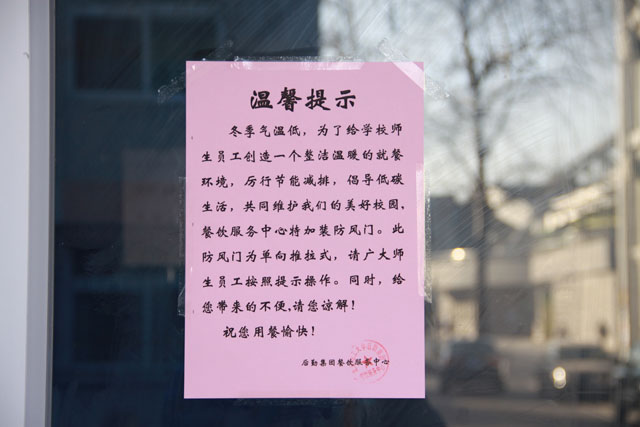 温馨提示
冬季气温低，为了给学校师
生员工创造一个整洁温暖的就餐
环境，厉行节能减排，倡导低碳
生活，共同维护我们的美好校园，
餐饮服务中心特加装防风门。此
防风门为单向推拉式，请广大师
生员工按照提示操作。同时，给
您带来的不便,请您谅解！
祝您用餐愉快！
后勤集团餐饮服务中心